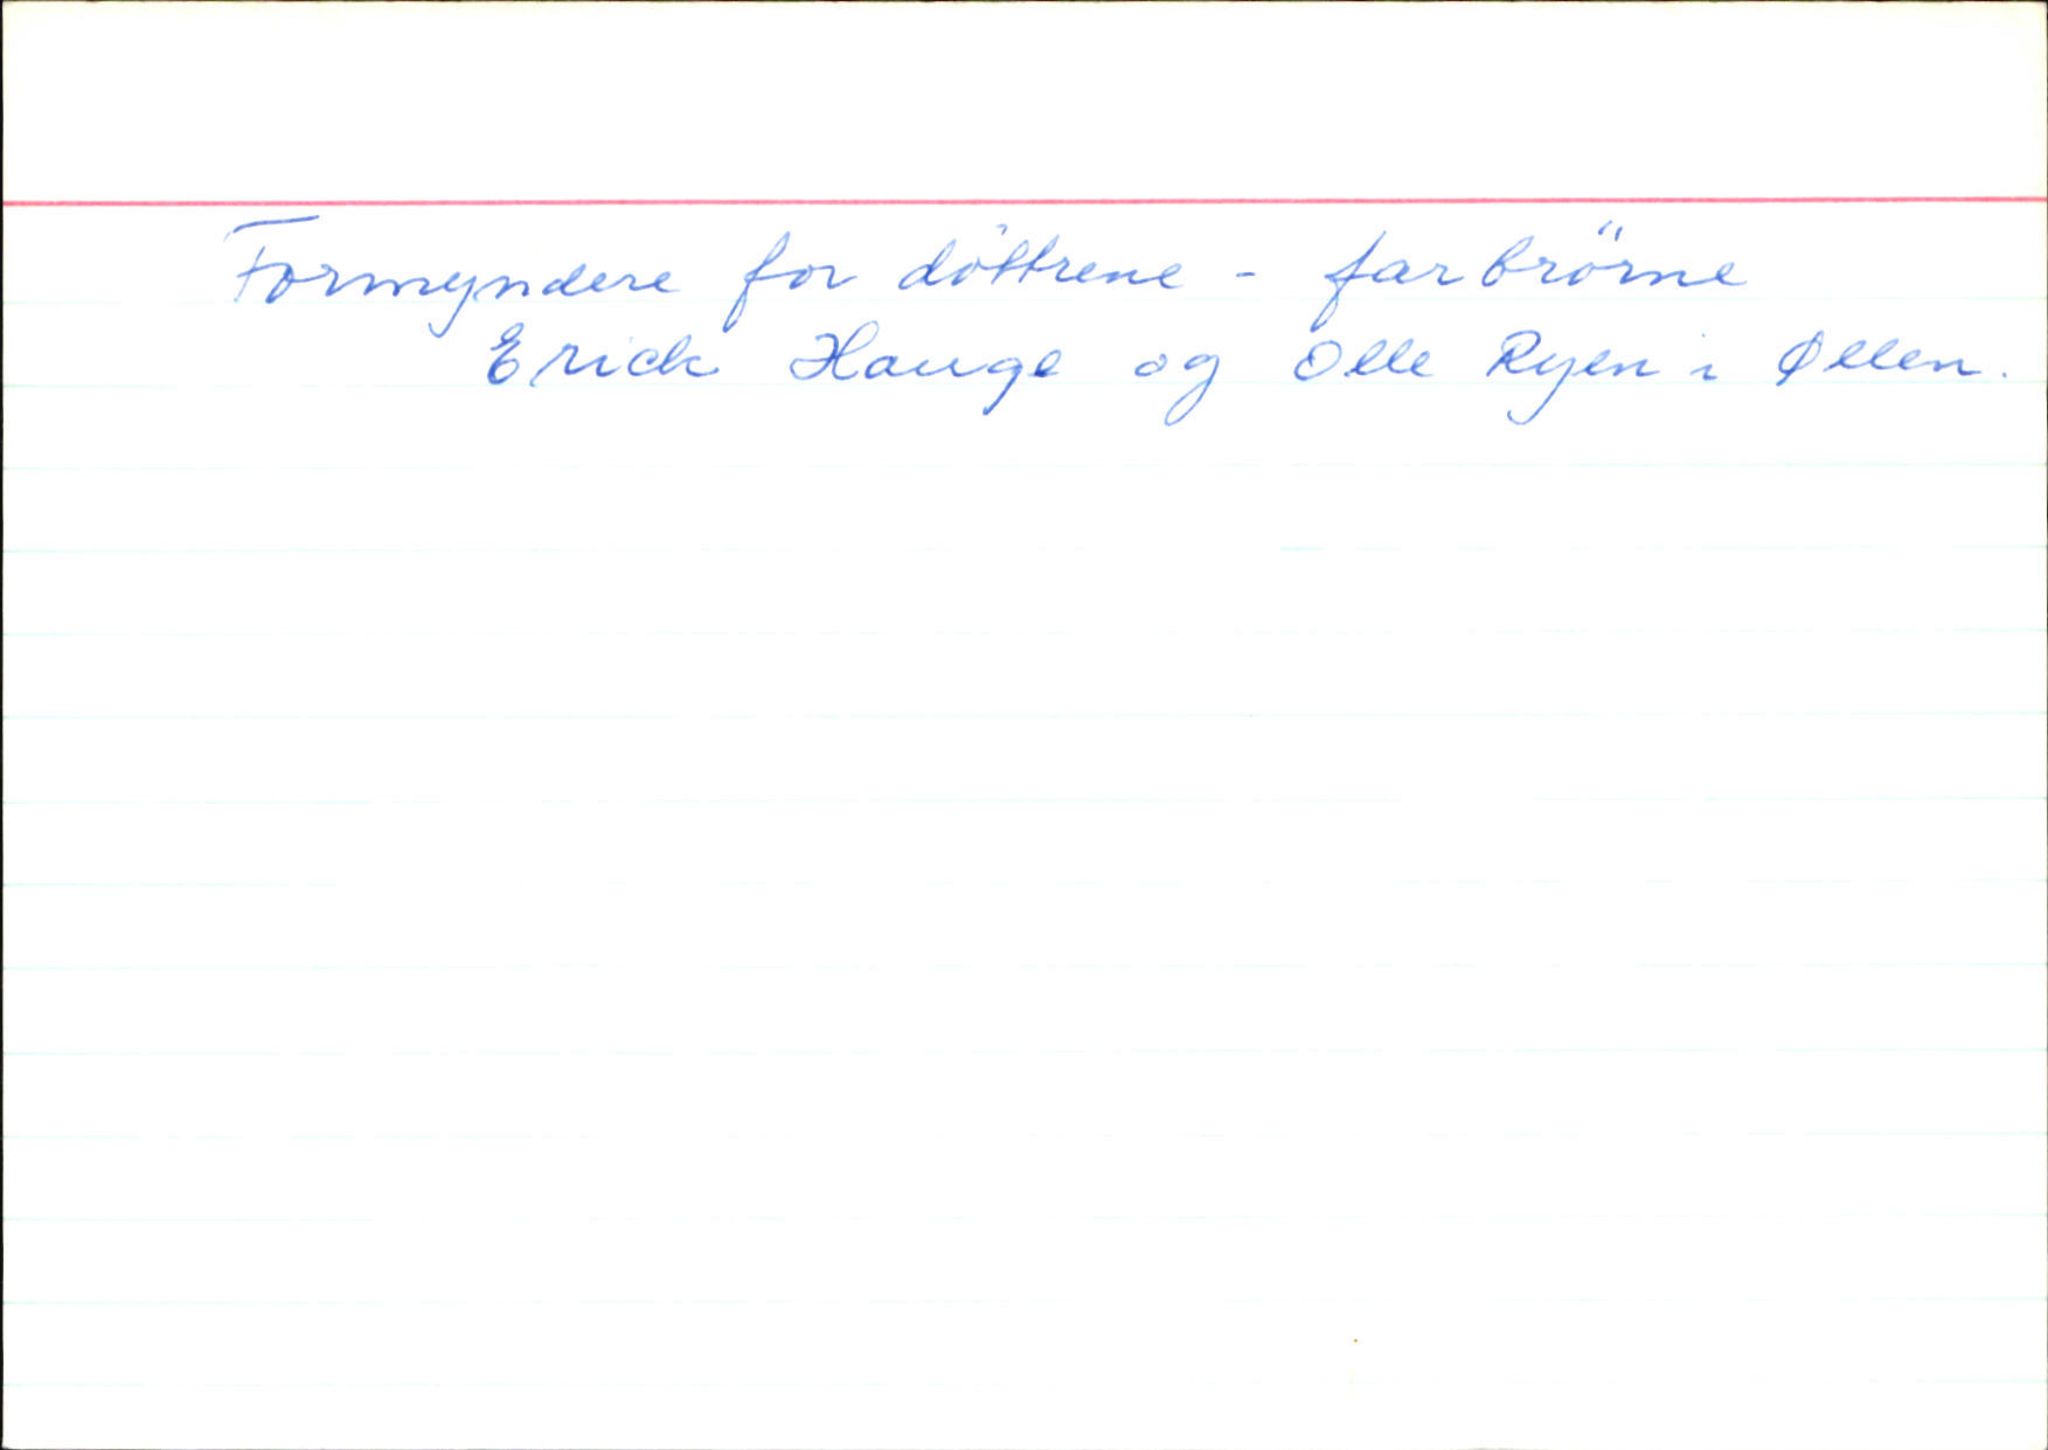 Formyndere for döttrene - farbrörne
Erick Hauge og Olle Ryen i Øllen.